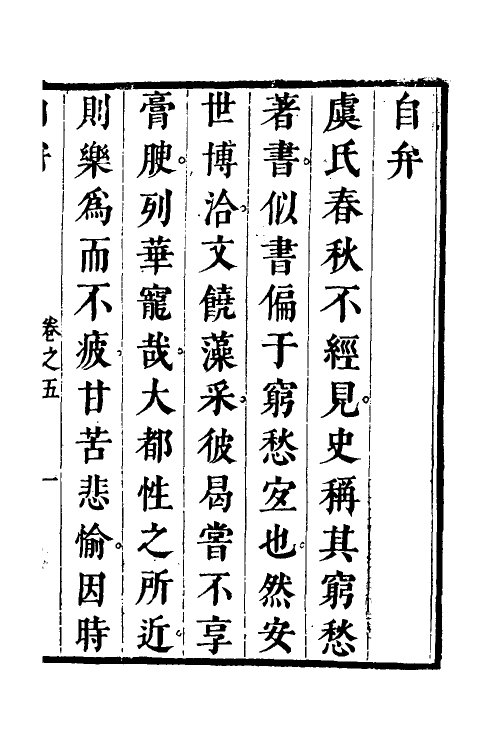 自弁
虞氏春秋不經見。史稱其窮愁
著書。似書偏于窮愁宜也。然安
世博洽。文饒藻采。彼曷嘗不享
膏腴。列華寵哉。大都性之所近。
則樂為而不疲。甘苦悲愉。因時
卷之五 一